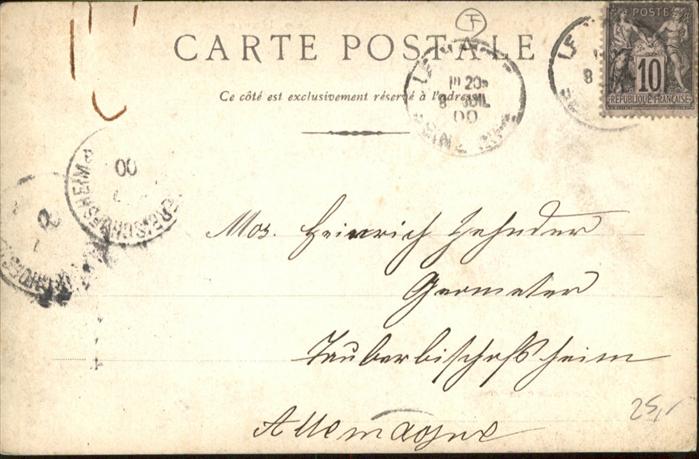 CARTE POSTALE
Ce côté est exclusivement réservé à l'adresse
POSTE
10
RÉPUBLIQUE FRANÇAISE
LE
8
LE
III 20
8 JUIL
00
SEINE INF
00
BISCHOFSHEIM
Mos. Heinrich Zehnder
Geometer
Tauberbischofsheim
Allemagne
25,-
F